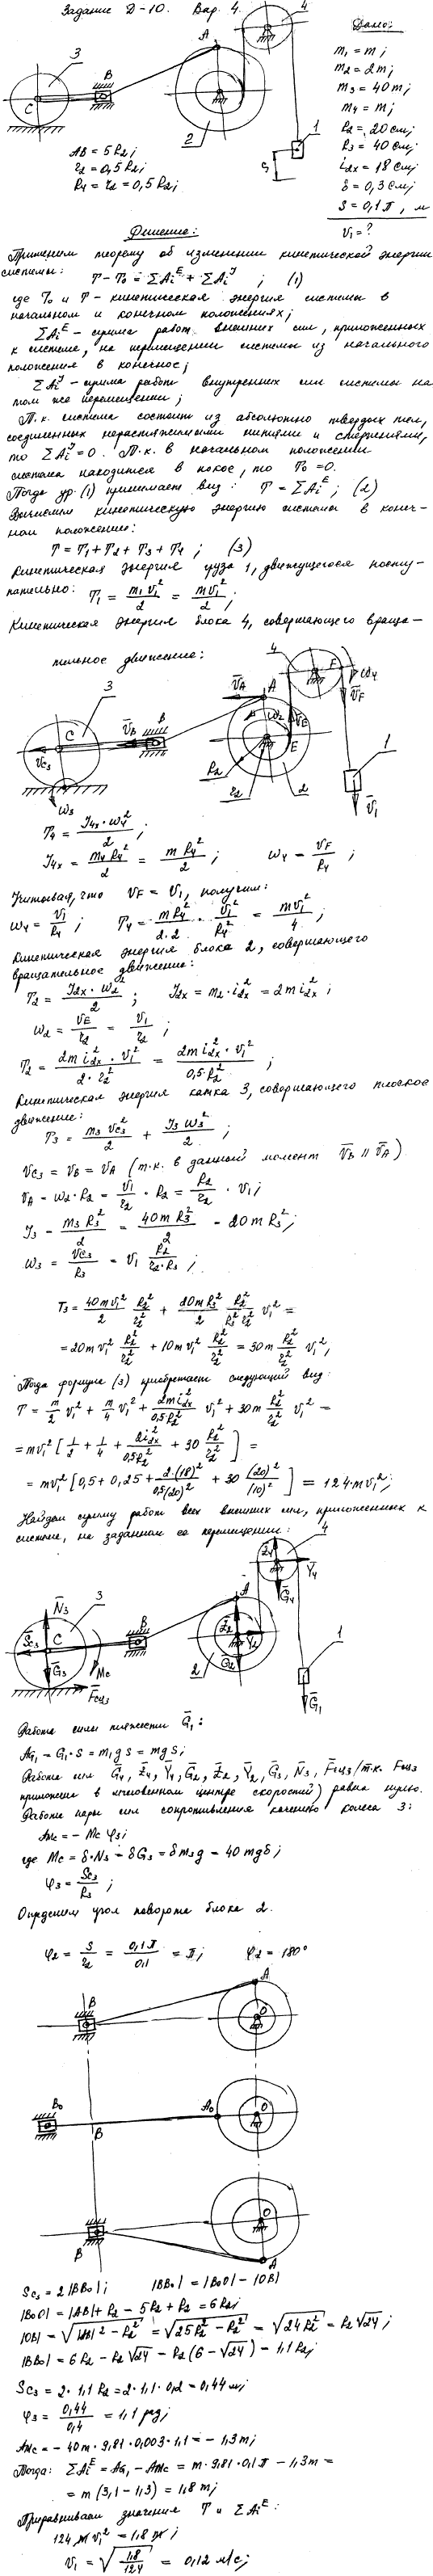 Задание Д-10. Вар. 4.
Дано:
m₁ = m;
m₂ = 2m;
m₃ = 40m;
m₄ = m;
R₂ = 20 см;
R₃ = 40 см;
i₂ₓ = 18 см;
δ = 0,3 см;
S = 0,1π, м
V₁ = ?
AB = 5R₂;
r₂ = 0,5R₂;
R₄ = r₂ = 0,5R₂;
Решение:
Применим теорему об изменении кинетической энергии
системы: T - T₀ = ΣAᵢᴱ + ΣAᵢᴶ ; (1)
где T₀ и T - кинетическая энергия системы в
начальном и конечном положениях;
ΣAᵢᴱ - сумма работ внешних сил, приложенных
к системе, на перемещении системы из начального
положения в конечное;
ΣAᵢᴶ - сумма работ внутренних сил системы на
том же перемещении;
Т.к. система состоит из абсолютно твердых тел,
соединенных нерастяжимыми нитями и стержнями,
то ΣAᵢᴶ = 0. Т.к. в начальном положении
система находится в покое, то T₀ = 0.
Тогда ур. (1) принимает вид: T = ΣAᵢᴱ ; (2)
Вычислим кинетическую энергию системы в конеч-
ном положении:
T = T₁ + T₂ + T₃ + T₄ ; (3)
Кинетическая энергия груза 1, движущегося посту-
пательно: T₁ = m₁V₁²/2 = mV₁²/2 ;
Кинетическая энергия блока 4, совершающего враща-
тельное движение:
T₄ = J₄ₓ·ω₄²/2 ;
J₄ₓ = m₄R₄²/2 = mR₄²/2 ; ω₄ = V_F/R₄ ;
Учитывая, что V_F = V₁, получим:
ω₄ = V₁/R₄ ; T₄ = mR₄²/2·2 · V₁²/R₄² = mV₁²/4 ;
Кинетическая энергия блока 2, совершающего
вращательное движение:
T₂ = J₂ₓ·ω₂²/2 ; J₂ₓ = m₂·i₂ₓ² = 2mi₂ₓ² ;
ω₂ = V_E/r₂ = V₁/r₂ ;
T₂ = 2mi₂ₓ²·V₁²/2·r₂² = 2mi₂ₓ²·V₁²/0,5R₂² ;
Кинетическая энергия катка 3, совершающего плоское
движение:
T₃ = m₃V_C₃²/2 + J₃ω₃²/2 ;
V_C₃ = V_B = V_A (т.к. в данный момент V̄_B ∥ V̄_A)
V_A = ω₂·R₂ = V₁/r₂ · R₂ = R₂/r₂ · V₁;
J₃ = m₃R₃²/2 = 40mR₃²/2 = 20mR₃² ;
ω₃ = V_C₃/R₃ = V₁ R₂/r₂·R₃ ;
T₃ = 40mV₁²/2 R₂²/r₂² + 20mR₃²/2 R₂²/R₃²r₂² V₁² =
= 20mV₁² R₂²/r₂² + 10mV₁² R₂²/r₂² = 30m R₂²/r₂² V₁² ;
Тогда формула (3) приобретает следующий вид:
T = m/2 V₁² + m/4 V₁² + 2mi₂ₓ²/0,5R₂² V₁² + 30m R₂²/r₂² V₁² =
= mV₁² [1/2 + 1/4 + 2i₂ₓ²/0,5R₂² + 30 R₂²/r₂²] =
= mV₁² [0,5 + 0,25 + 2·(18)²/0,5(20)² + 30 (20)²/(10)²] = 124·mV₁² ;
Найдем сумму работ всех внешних сил, приложенных к
системе, на заданном ее перемещении:
Работа силы тяжести G̅₁ :
A_G₁ = G₁·S = m₁gS = mgS ;
Работа сил G̅₄, Z̅₄, Y̅₄, G̅₂, Z̅₂, Y̅₂, G̅₃, N̅₃, F̅сц₃ (т.к. Fсц₃
приложена в мгновенном центре скоростей) равна нулю.
Работа пары сил сопротивления качению колеса 3:
A_Mc = - Mc φ₃;
где Mc = δ·N₃ = δG₃ = δm₃g = 40mgδ ;
φ₃ = S_C₃/R₃ ;
Определим угол поворота блока 2.
φ₂ = S/r₂ = 0,1π/0,1 = π ; φ₂ = 180°
S_C₃ = 2|BB₀| ; |BB₀| = |B₀O| - |OB|
|B₀O| = |AB| + R₂ = 5R₂ + R₂ = 6R₂;
|OB| = √(|AB|² - R₂²) = √(25R₂² - R₂²) = √(24R₂²) = R₂√24 ;
|BB₀| = 6R₂ - R₂√24 = R₂(6 - √24) = 1,1R₂;
S_C₃ = 2·1,1R₂ = 2·1,1·0,2 = 0,44 м;
φ₃ = 0,44/0,4 = 1,1 рад;
A_Mc = - 40m·9,81·0,003·1,1 = - 1,3m;
Тогда: ΣAᵢᴱ = A_G₁ - A_Mc = m·9,81·0,1π - 1,3m =
= m(3,1 - 1,3) = 1,8m;
Приравниваем значения T и ΣAᵢᴱ :
124 mV₁² = 1,8 m;
V₁ = √(1,8/124) = 0,12 м/с;